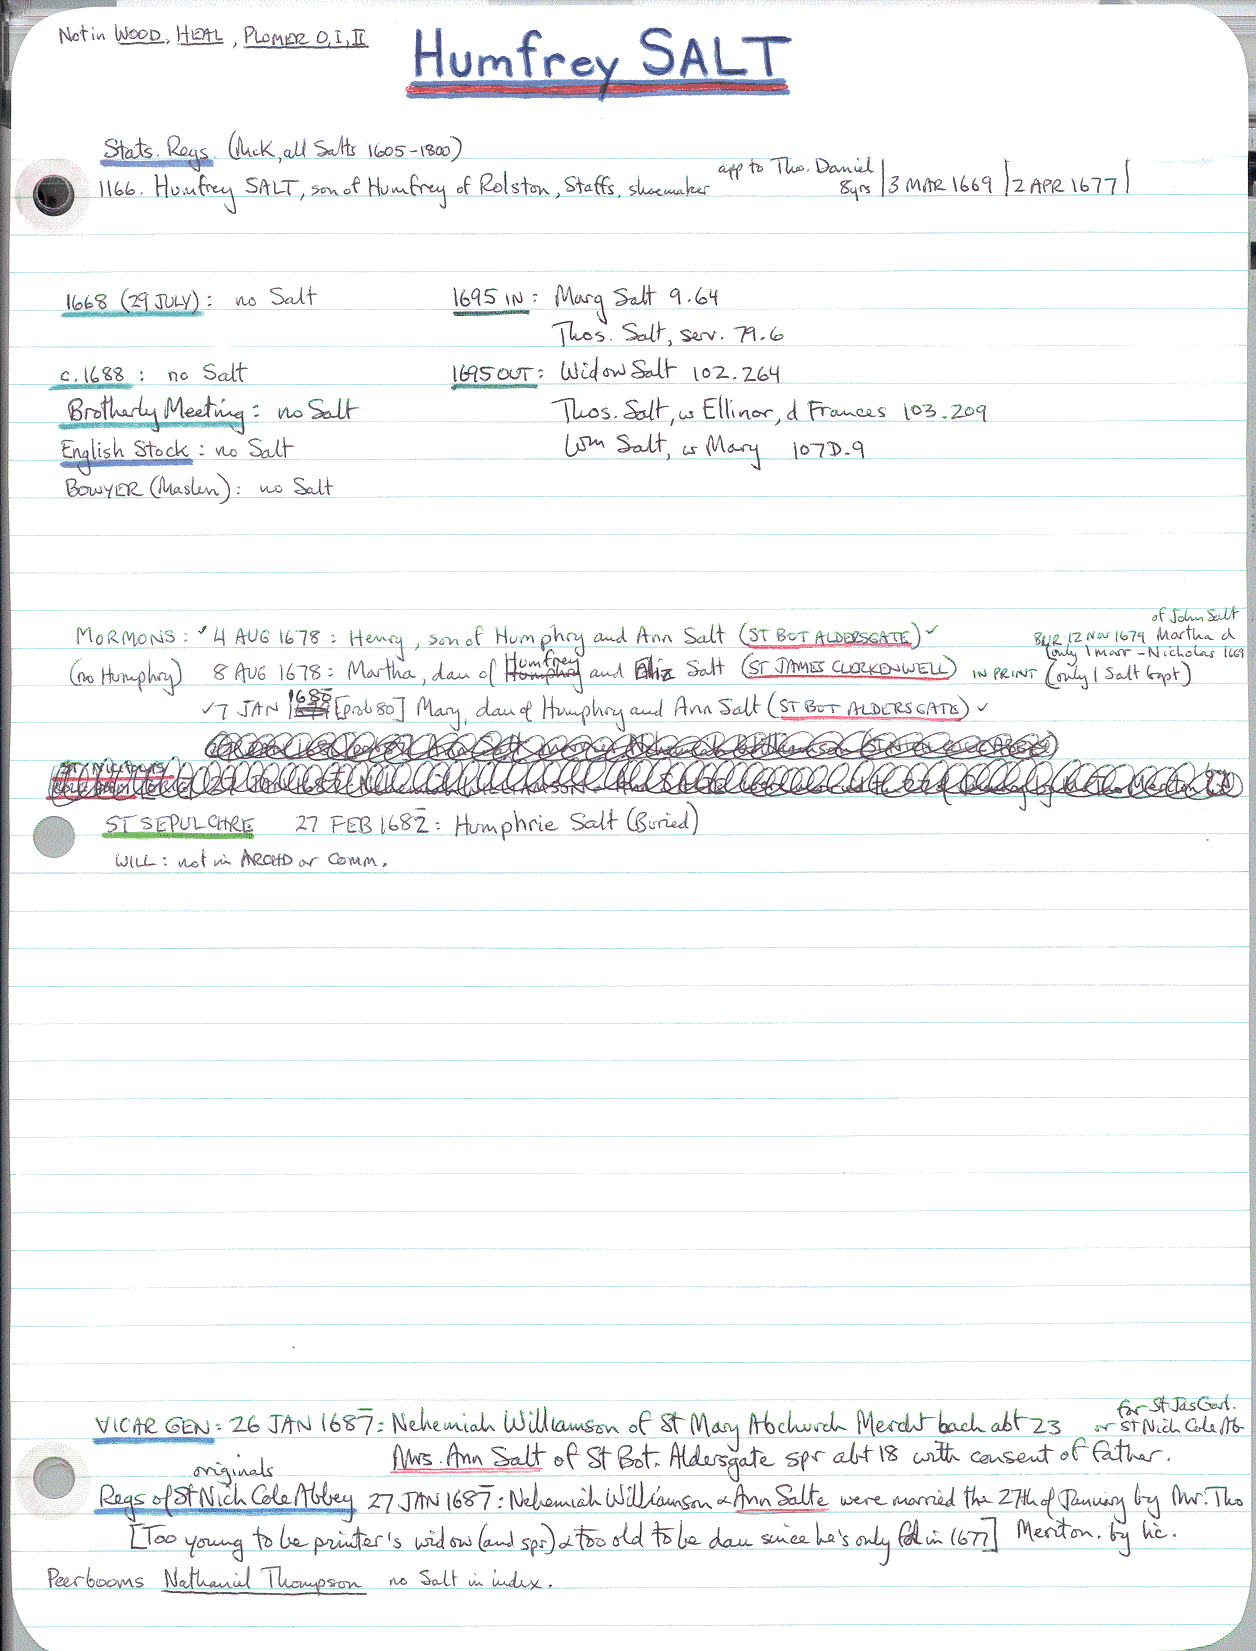 Not in WOOD, HEAL, PLOMER O, I, II
Humfrey SALT
Stats. Regs. (McK, all Salts 1605-1800)
1166. Humfrey SALT, son of Humfrey of Rolston, Staffs, shoemaker app to Tho. Daniel 8yrs | 3 MAR 1669 | 2 APR 1677 |
1668 (29 JULY): no Salt
1695 IN: Marg Salt 9.64
Thos. Salt, serv. 79.6
c.1688: no Salt
1695 OUT: Widow Salt 102.264
Brotherly Meeting: no Salt
Thos. Salt, w Ellinor, d Frances 103.209
English Stock: no Salt
Wm Salt, w Mary 107D.9
BOWYER (Maslen): no Salt
of John Salt
MORMONS: ✓ 4 AUG 1678: Henry, son of Humphry and Ann Salt (ST BOT ALDERSGATE) ✓
BUR 12 NOV 1679 Martha d
(only 1 marr - Nicholas 1669
(no Humphry) 8 AUG 1678: Martha, dau of Humfrey and Eliz Salt (ST JAMES CLERKENWELL) IN PRINT (only 1 Salt bapt)
✓ 7 JAN 1680 [prob 80] Mary, dau of Humphry and Ann Salt (ST BOT ALDERSGATE) ✓
ST SEPULCHRE 27 FEB 1682: Humphrie Salt (Buried)
WILL: not in ARCHD or COMM.
for St Jas Garl.
VICAR GEN: 26 JAN 1687: Nehemiah Williamson of St Mary Abchurch Mercht bach abt 23 or St Nich Cole Ab
Mrs. Ann Salt of St Bot. Aldersgate spr abt 18 with consent of father.
originals
Regs of St Nich Cole Abbey 27 JAN 1687: Nehemiah Williamson & Ann Salte were married the 27th of January by Mr. Tho
[Too young to be printer's widow (and spr) & too old to be dau since he's only fd in 1677] Meriton. by lic.
Peerbooms Nathaniel Thompson no Salt in index.